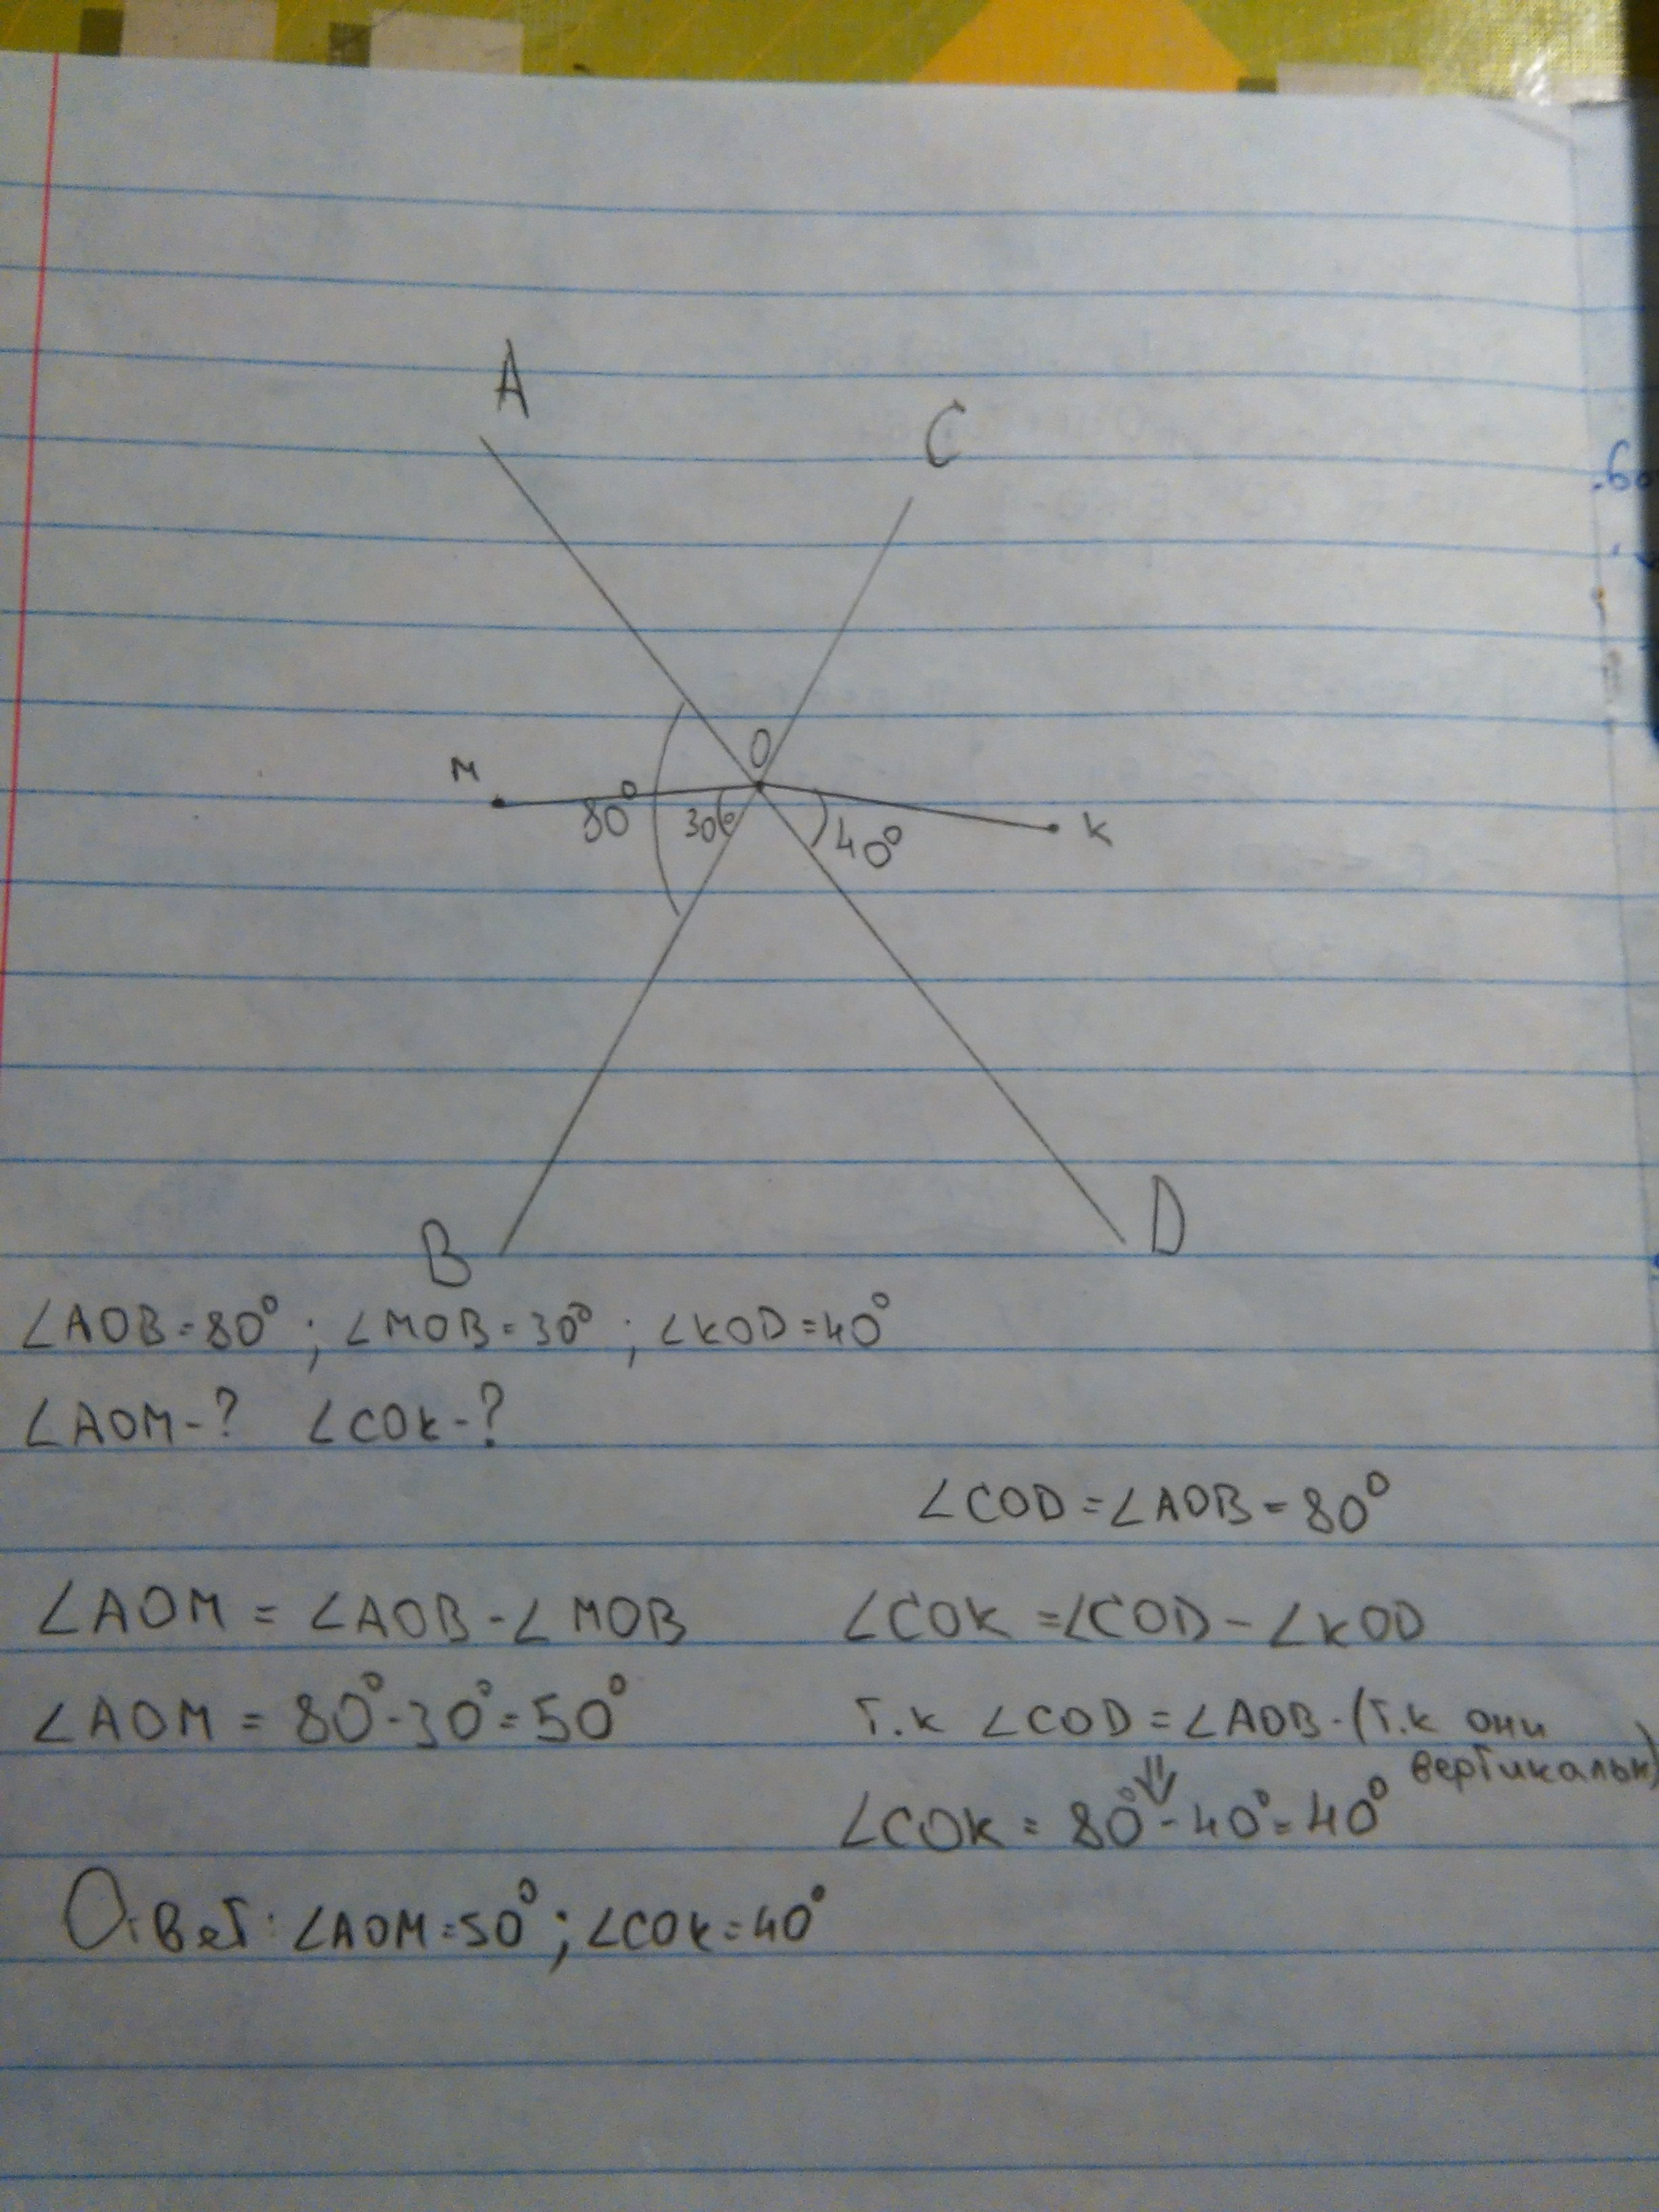 A
C
O
M
80°
30°
40°
K
B
D
∠AOB=80° ; ∠MOB=30° ; ∠KOD=40°
∠AOM-? ∠COK-?
∠COD=∠AOB=80°
∠AOM = ∠AOB-∠MOB
∠COK =∠COD-∠KOD
∠AOM = 80°-30°=50°
т.к ∠COD=∠AOB-(т.к они
вертикальн)
⇓
∠COK = 80°-40°=40°
Ответ: ∠AOM=50° ; ∠COK=40°